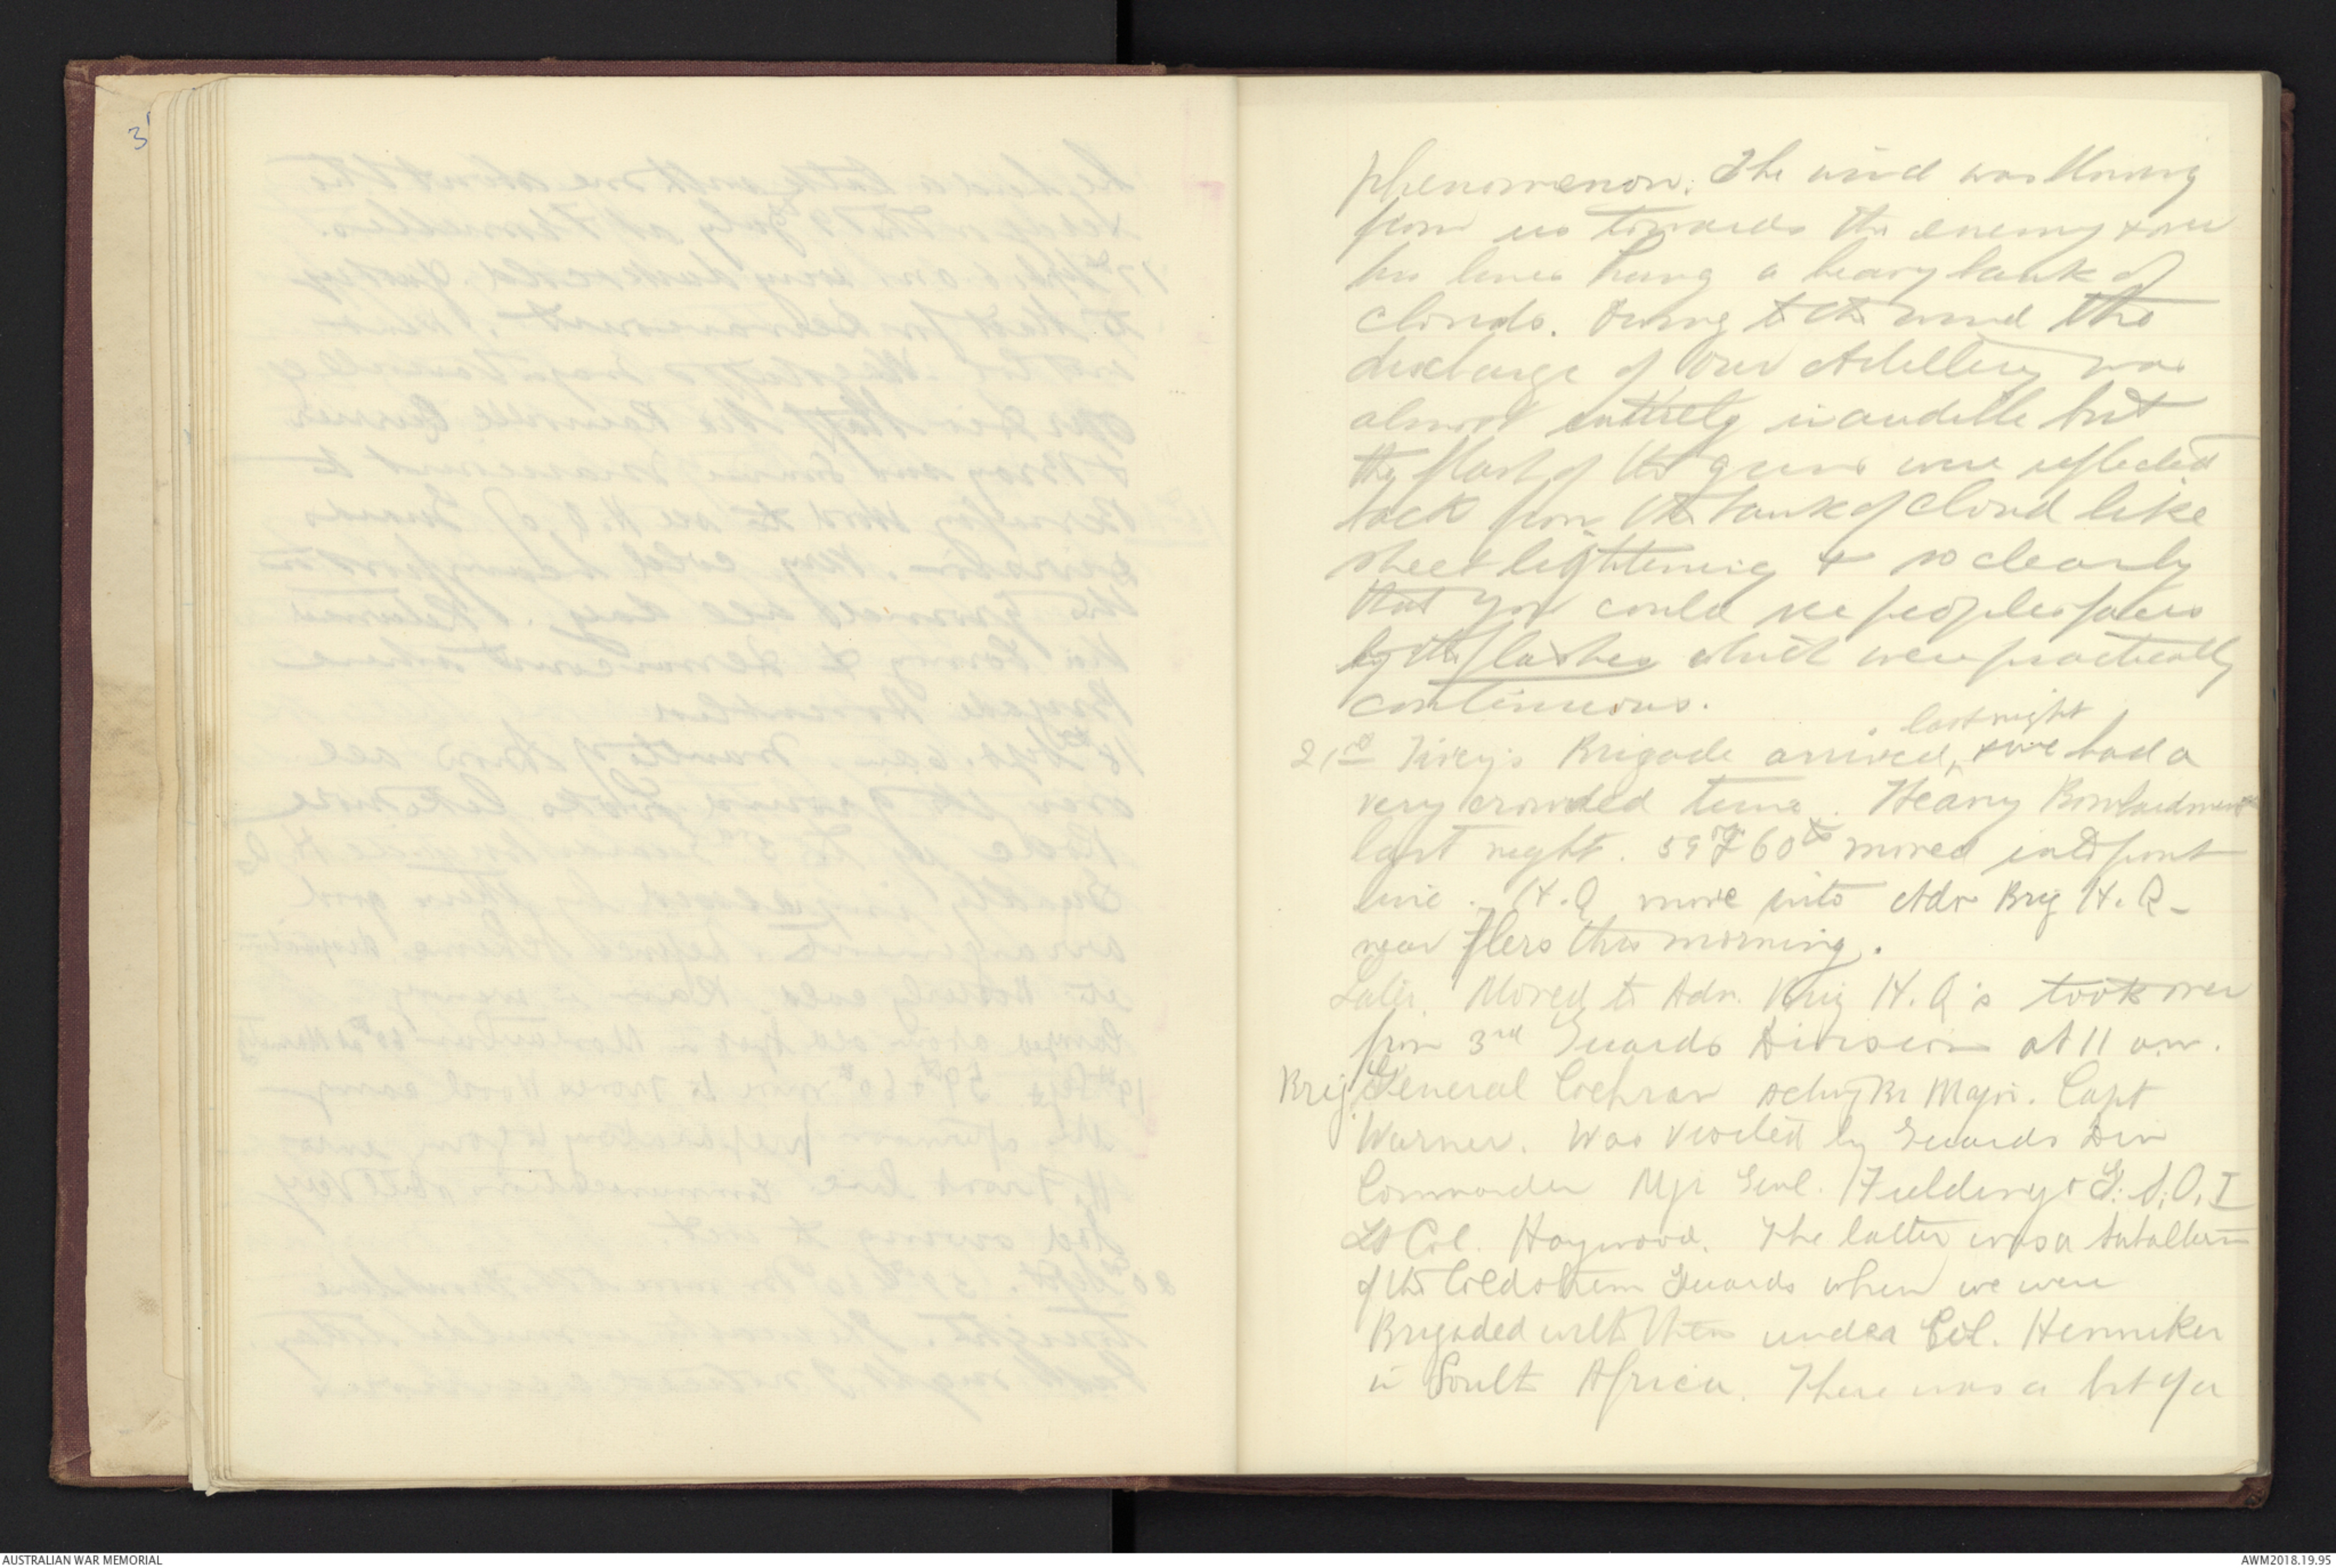 3
phenomenon. The wind was blowing
from us towards the enemy & over
his lines hung a heavy bank of
clouds. Owing to the wind the
discharge of our Artillery was
almost entirely inaudible but
the flash of the guns were reflected
back from the bank of cloud like
sheet lightening & so clearly
that you could see peoples faces
by the flashes which were practically
continuous.
last night
21st Tivey's Brigade arrived, & we had a
very crowded time. Heavy Bombardment
last night. 59th & 60th moved into front
line. H.Q move into Adv Brig H.Q.
near Flers this morning.
Later. Moved to Adv. Brig H.Q's took over
from 3rd Guards Division at 11 a.m.
Brig. General Cochran acting Br Major. Capt
Warner. Was visited by Guards Div
Commander Mjr Genl. Fielding & G.S.O.I
Lt Col. Haywood. The latter was a subaltern
of the Coldstream Guards when we were
Brigaded with them under Col. Henniker
in South Africa. There was a bit of a
AUSTRALIAN WAR MEMORIAL
AWM2018.19.95